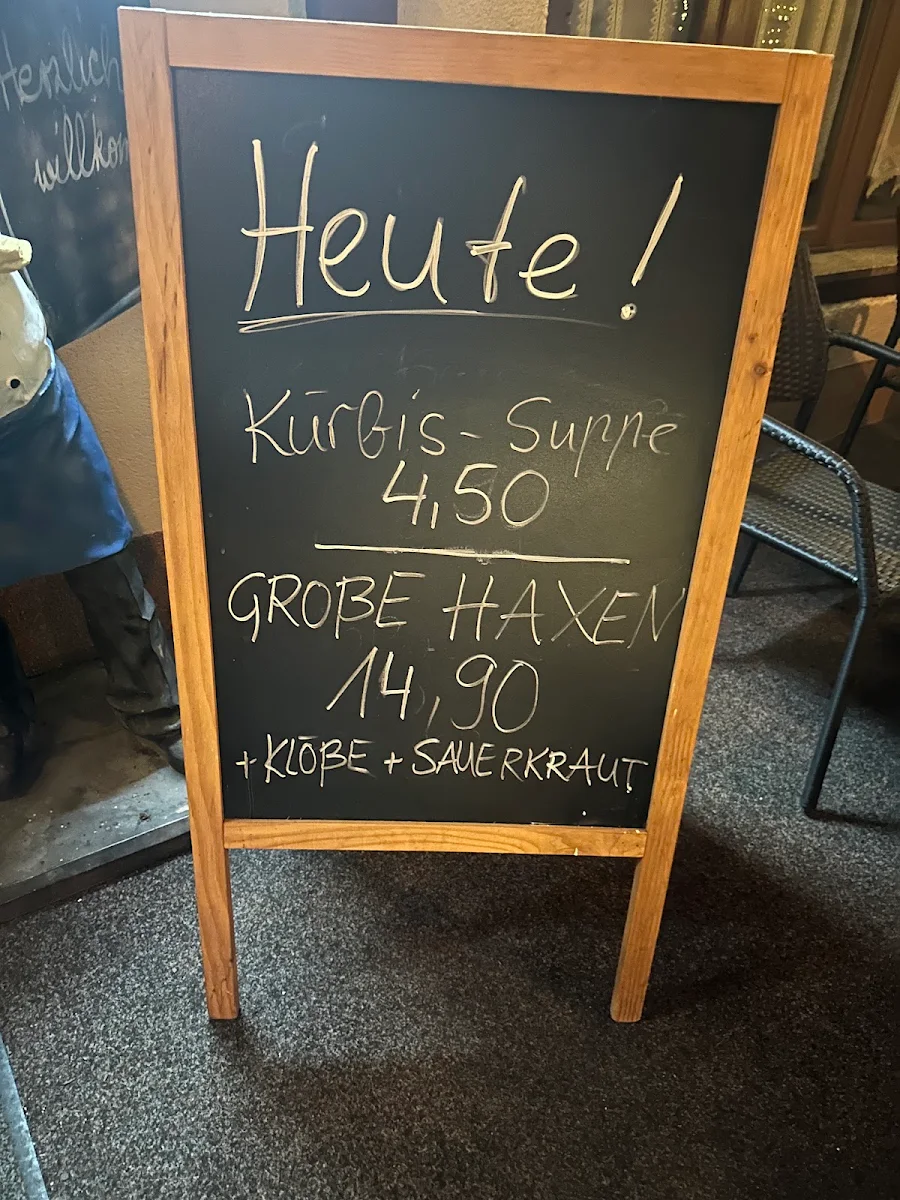 Herzlich
willkom
Heute!
Kürbis-Suppe
4,50
GROßE HAXEN
14,90
+KLÖßE + SAUERKRAUT